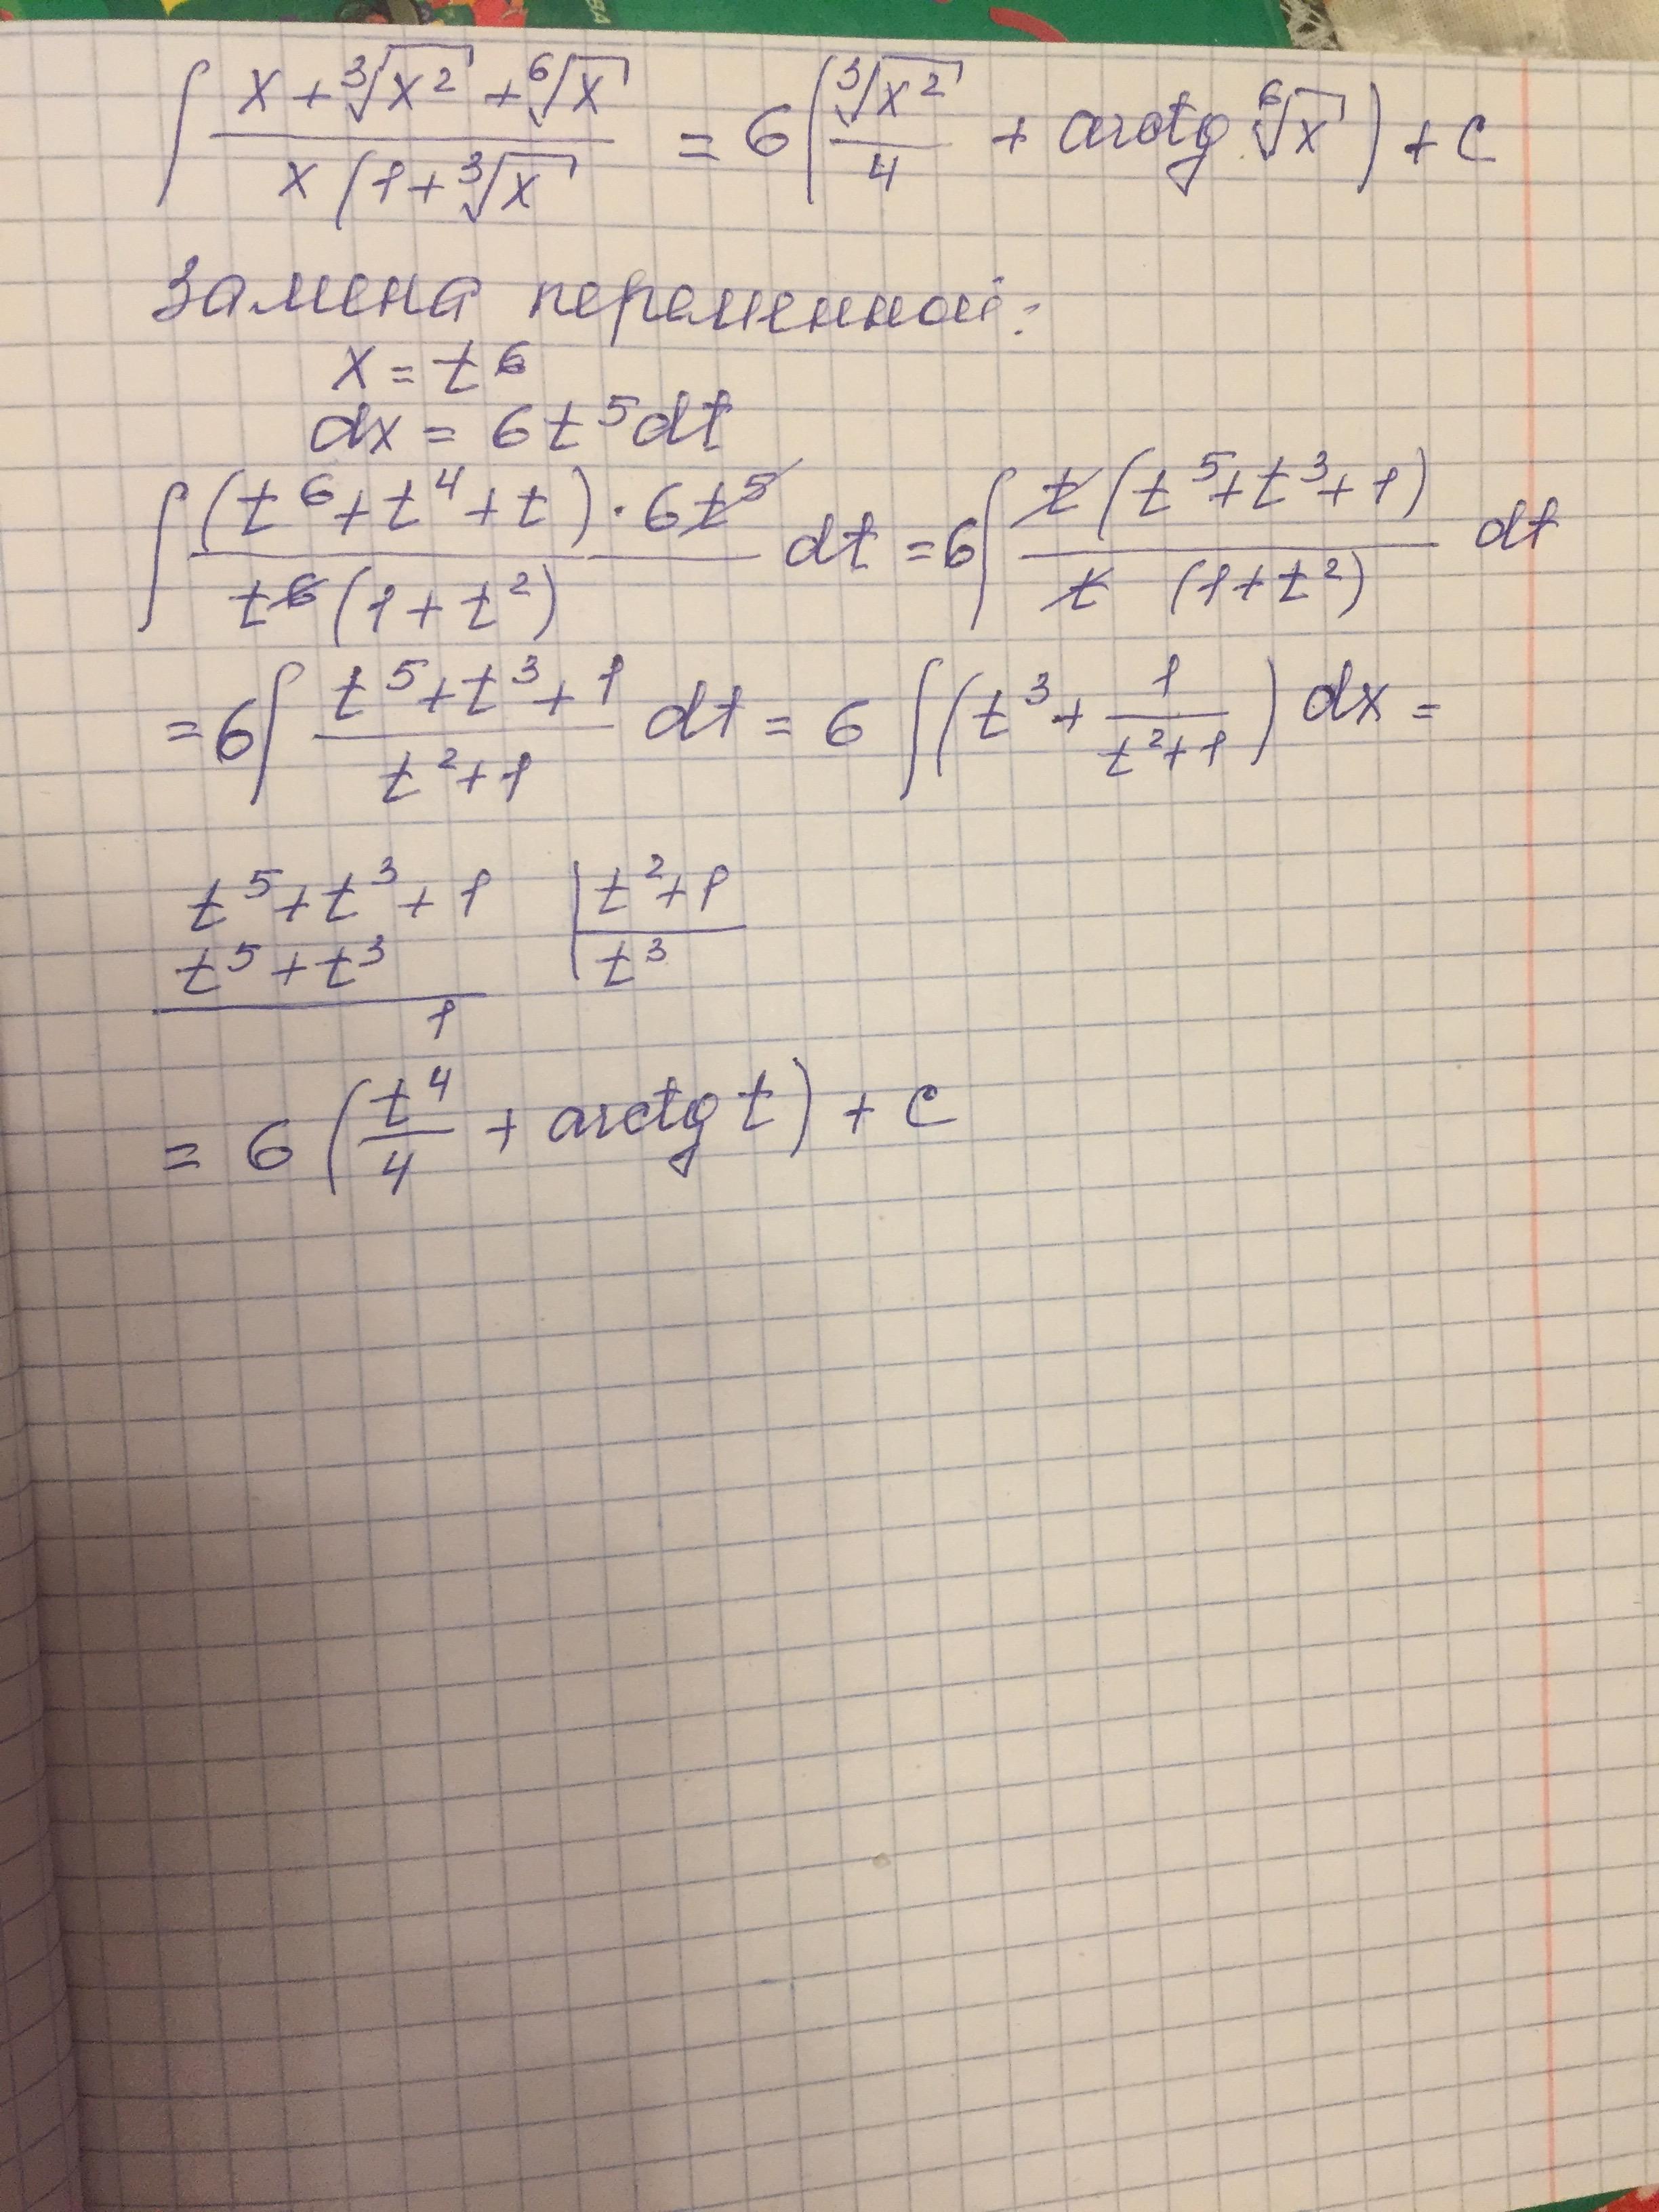 ∫ (x + ∛x² + ⁶√x) / (x(1 + ∛x) = 6(∛x²/4 + arctg ⁶√x) + c
Замена переменной:
x = t⁶
dx = 6t⁵dt
∫ ((t⁶ + t⁴ + t) · 6t⁵) / (t⁶(1 + t²)) dt = 6∫ (t(t⁵ + t³ + 1)) / (t (1 + t²)) dt
= 6∫ (t⁵ + t³ + 1) / (t² + 1) dt = 6 ∫(t³ + 1/(t² + 1)) dx =
t⁵ + t³ + 1 | t² + 1
t⁵ + t³ | t³
1
= 6(t⁴/4 + arctg t) + c